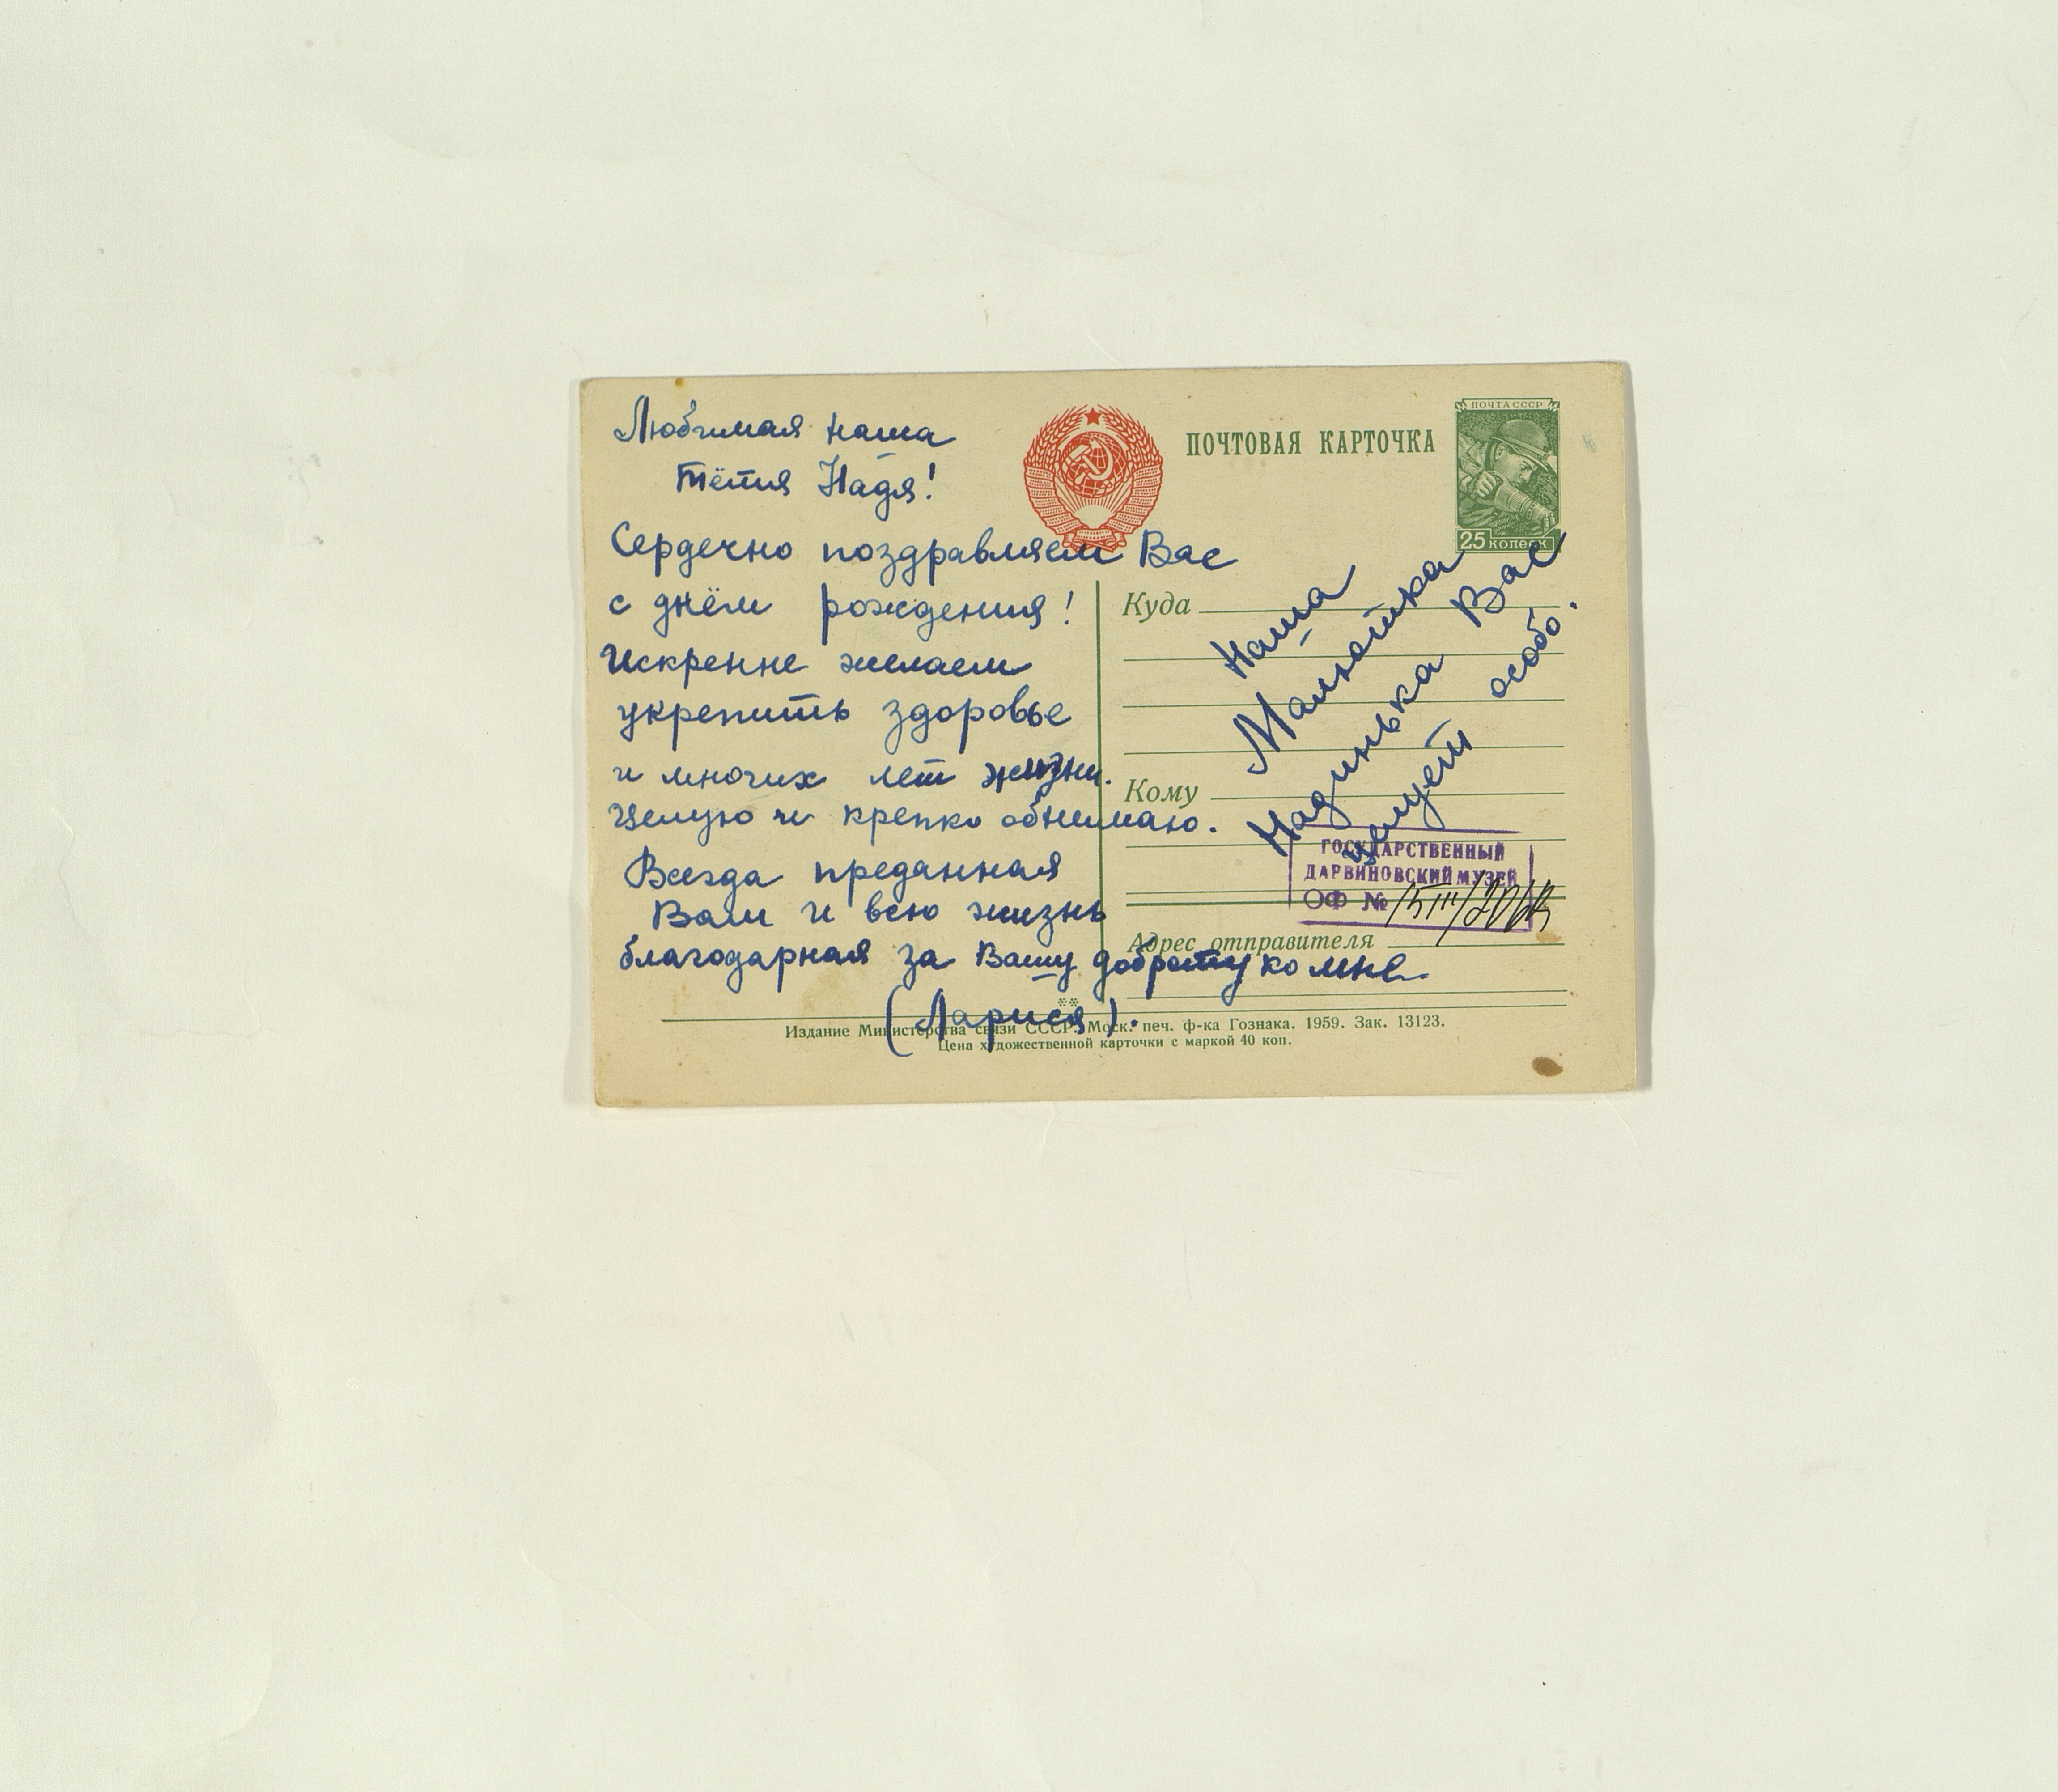 Любимая наша
тётя Надя!
Сердечно поздравляем Вас
с днём рождения!
Искренне желаем
укрепить здоровье
и многих лет жизни.
Целую и крепко обнимаю.
Всегда преданная
Вам и всю жизнь
благодарная за Вашу доброту ко мне
(Лариса).
ПОЧТОВАЯ КАРТОЧКА
ПОЧТА СССР
25 КОПЕЕК
Куда
Кому
Наша
Малютка
Надинька Вас
целует особо.
ГОСУДАРСТВЕННЫЙ
ДАРВИНОВСКИЙ МУЗЕЙ
ОФ №
Адрес отправителя
Издание Министерства связи СССР. Моск. печ. ф-ка Гознака. 1959. Зак. 13123.
Цена художественной карточки с маркой 40 коп.